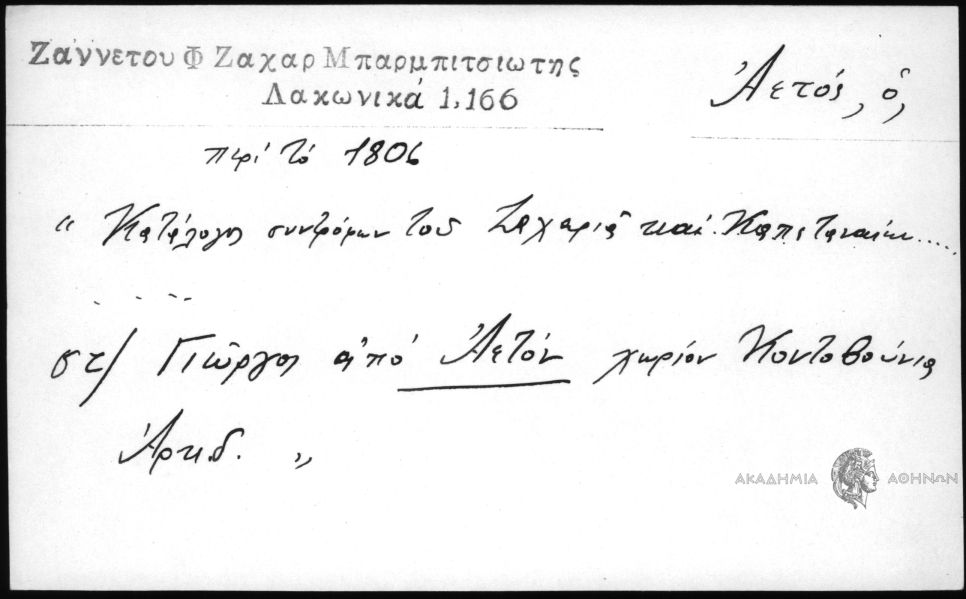 Ζαννετου Φ Ζαχαρ Μπαρμπιτσιωτης
Λακωνικά 1,166
Ἀετός, ὁ,
περί τό 1806
“ Κατάλογος συντρόφων τοῦ Ζαχαριᾶ καί Καπεταναίων.....
. . . .
στ/ Γιῶργος ἀπό Ἀετόν χωρίον Κοντοβούνια
Ἀρκδ. „
ΑΚΑΔΗΜΙΑ ΑΘΗΝΩΝ